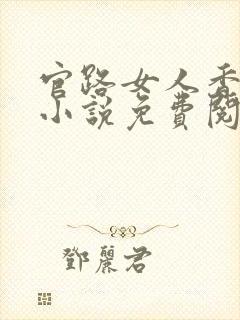 官路女人香
小說免費閱
鄧麗君